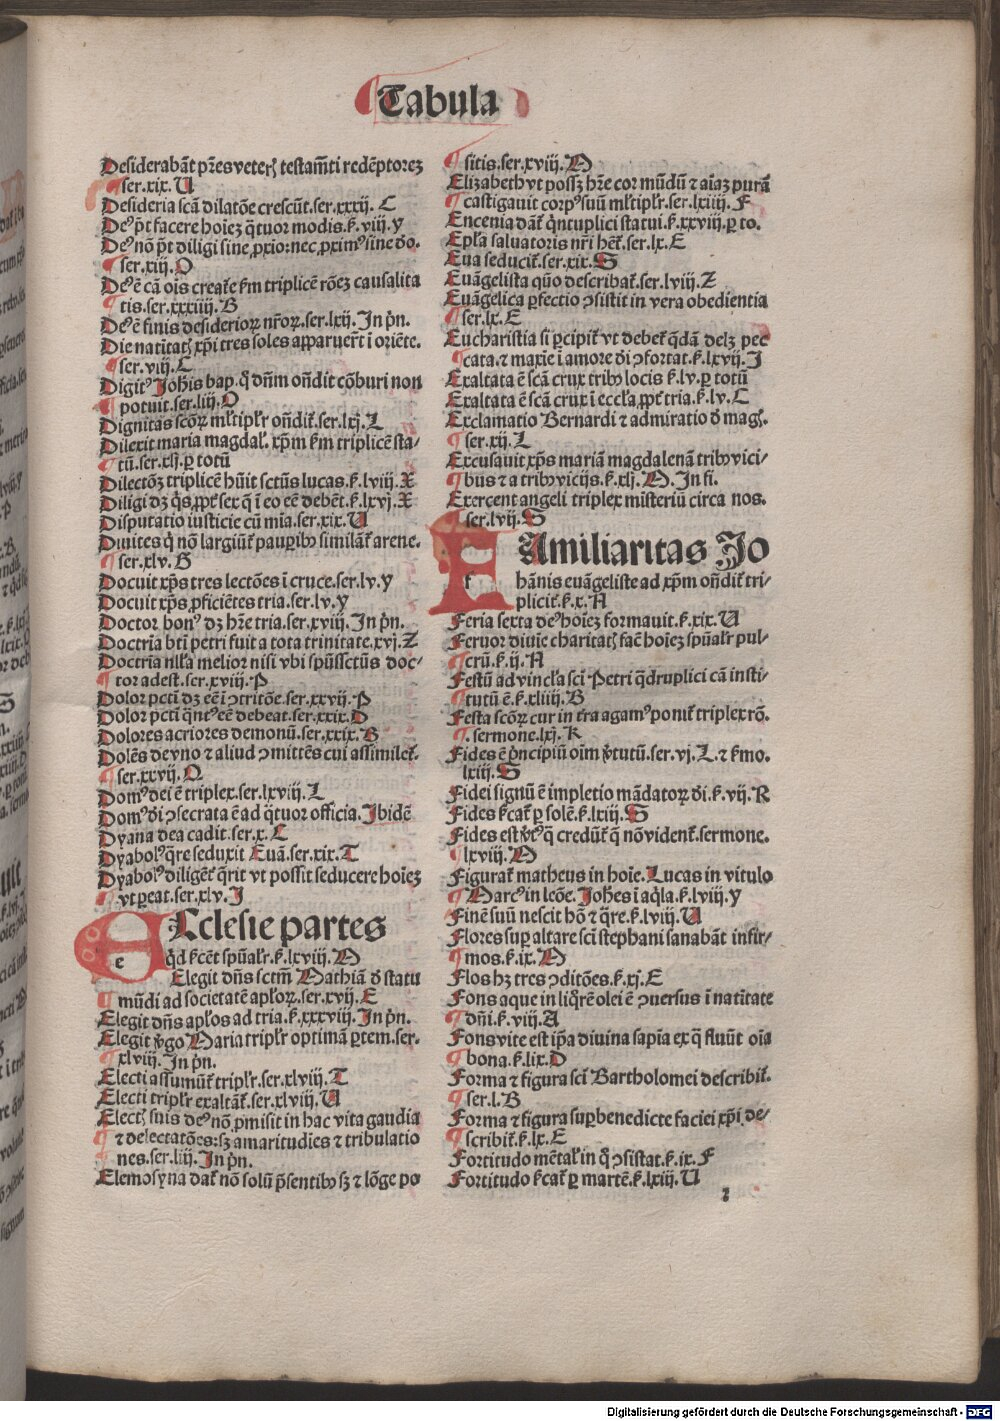 Tabula
Desiderabāt pr̄es veteꝝ testamēti redēptorez
ser.xix.U
Desideria scā dilatōe crescūt.ser.xxxij. C
Deꝰ p̄t facere hoiez q̄tuor modis.ꝼ.viij.y
Deꝰ nō p̄t diligi sine ꝓxio:nec ꝓximꝰ sine d̄o.
ser.xiij.O
Deꝰ ē cā oīs creat̄e ꝼm triplicē rōez causalita
tis.ser.xxxiiij.B
Deꝰ ē finis desiderioꝝ nr̄oꝝ.ser.lxij.In p̄n.
Die natītatꝭ xp̄i tres soles apparuer̄t ī oriēte.
ser.viij.C
Digitꝰ Joh̄is bap. q̄ dn̄m on̄dit cōburi non
potuit.ser.liij.O
Dignitas scōꝝ ml̄tiplr̄ on̄dit̄.ser.lxj.L
Dilexit maria magdal̄. xp̄m ꝼm triplicē sta⸗
tū.ser.xlj.ꝑ totū
Dilectōꝫ triplicē hūit sct̄us lucas.ꝼ.lviij.X
Diligi dꝫ q̄s ꝓpt̄ sex q̄ ī eo eē debēt.ꝼ.lxvj.X
Disputatio iusticie cū mīa.ser.xix.U
Diuites q̄ nō largiūt̄ pauꝑibꝰ similāt̄ arene.
ser.xlv.G
Docuit xp̄s tres lectōes ī cruce.ser.lv.y
Docuit xp̄s ꝓficiētes tria.ser.lv.y
Doctor bonꝰ dꝫ hr̄e tria.ser.xviij.In p̄n.
Doctrīa bt̄i petri fuit a tota trinitate.xvj.Z
Doctrīa nll̄a melior nisi vbi sp̄ūssct̄us doc⸗
tor adest.ser.xviij.P
Dolor pct̄i dꝫ eē ī ↄtritōe.ser.xxvij.P
Dolor pct̄i q̄ntꝰ eē debeat.ser.xxix.D
Dolores acriores demonū.ser.xxix.B
Dolēs de vno ⁊ aliud ↄmittēs cui assimilet̄.
ser.xxvij.O
Domꝰ dei ē triplex.ser.lxviij.L
Domꝰ d̄i ↄsecrata ē ad q̄tuor officia. Ibidē
Dyana dea cadit.ser.x.C
Dyabolꝰ q̄re seduxit Euā.ser.xix.T
Dyabolꝰ diligēt̄ q̄rit vt possit seducere hoiez
vt ꝑeat.ser.xlv.J
Ecclesie partes
e
q̄d ꝼcēt sp̄ūalr̄.ꝼ.lxviij.M
Elegit dn̄s sct̄m Mathiā d̄ statu
mūdi ad societatē apl̄oꝝ.ser.xvij.E
Elegit dn̄s apl̄os ad tria.ꝼ.xxxviij.In p̄n.
Elegit v̄go Maria triplr̄ optimā ꝑtem.ser.
xlviij.In p̄n.
Electi assumūt̄ triplr̄.ser.xlviij.T
Electi triplr̄ exaltāt̄.ser.xlviij.U
Electꝭ suis deꝰ nō ꝓmisit in hac vita gaudia
⁊ delectatōes:sꝫ amaritudīes ⁊ tribulatio
nes.ser.liij.In p̄n.
Elemosyna dat̄ nō solū p̄sentibꝰ sꝫ ⁊ lōge po
sitis.ser.xviij.M
Elizabeth vt possꝫ hr̄e cor mūdū ⁊ aīaꝫ purā
castigauit corpꝰ suū ml̄tiplr̄.ser.lxiiij.F
Encenia dāt̄ q̄ntuplici statui.ꝼ.xxviij.ꝑ to.
Epl̄a saluatoris nr̄i het̄.ser.lx.E
Eua seducit̄.ser.xix.S
Euāgelista quō describat̄.ser.lviij.Z
Euāgelica ꝑfectio ↄsistit in vera obedientia
ser.lx.E
Eucharistia si ꝑcipit̄ vt debet̄ q̄dā delꝫ pec
cata.⁊ maxīe ī amore d̄i ↄfortat.ꝼ.lxvij.J
Exaltata ē scā crux tribꝰ locis.ꝼ.lv.ꝑ totū
Exaltata ē scā crux ī eccl̄a ꝓpt̄ tria.ꝼ.lv.C
Exclamatio Bernardi ⁊ admiratio d̄ magꝭ.
ser.xij.L
Excusauit xp̄s mariā magdalenā tribꝰ vici⸗
bus ⁊ a tribꝰ vicijs.ꝼ.xlj.M.In fi.
Exercent angeli triplex misteriū circa nos.
ser.lvij.S
FAmiliaritas Jo
f
hānis euāgeliste ad xp̄m on̄dit̄ tri⸗
plicit̄.ꝼ.x.A
Feria sexta deꝰ hoiez formauit.ꝼ.xix.U
Feruor diuīe charitatꝭ facꝭ hoiez sp̄ūalr̄ pul⸗
crū.ꝼ.ij.A
Festū ad vincl̄a sc̄i Petri q̄druplici cā insti⸗
tutū ē.ꝼ.xliiij.B
Festa scōꝝ cur in tra agamꝰ ponit̄ triplex rō.
.sermone.lxj.K
Fides ē p̄ncipiū oīm v̄tutū.ser.vj.L.⁊ ꝼmo.
lxiij.S
Fidei signū ē impletio mādatoꝝ d̄i.ꝼ.vij.R
Fides ꝼcat̄ ꝑ solē.ꝼ.lxiij.S
Fides est v̄tꝰ q̄ credūt̄ q̄ nō vident̄.sermone.
lxviij.M
Figurat̄ matheus in hoīe. Lucas in vitulo
Marcꝰ in leōe. Joh̄es ī aq̄la.ꝼ.lviij.y
Finē suū nescit hō ⁊ q̄re.ꝼ.lviij.U
Flores suꝑ altare sc̄i stephani sanabāt infir⸗
mos.ꝼ.ix.M
Flos hꝫ tres ↄditōes.ꝼ.xj.E
Fons aque in liq̄rē olei ē ↄuersus ī natītate
dn̄i.ꝼ.viij.A
Fons vite est ip̄a diuina sapīa ex q̄ fluūt oīa
bona.ꝼ.lix.D
Forma ⁊ figura sc̄i Bartholomei describit̄.
ser.l.B
Forma ⁊ figura suꝑbenedicte faciei xp̄i de⸗
scribit̄.ꝼ.lx.E
Fortitudo mētal̄ in q̄ ↄsistat.ꝼ.ix.F
Fortitudo ꝼcat̄ ꝑ martē.ꝼ.lxiij.U
2
Digitalisierung gefördert durch die Deutsche Forschungsgemeinschaft - DFG